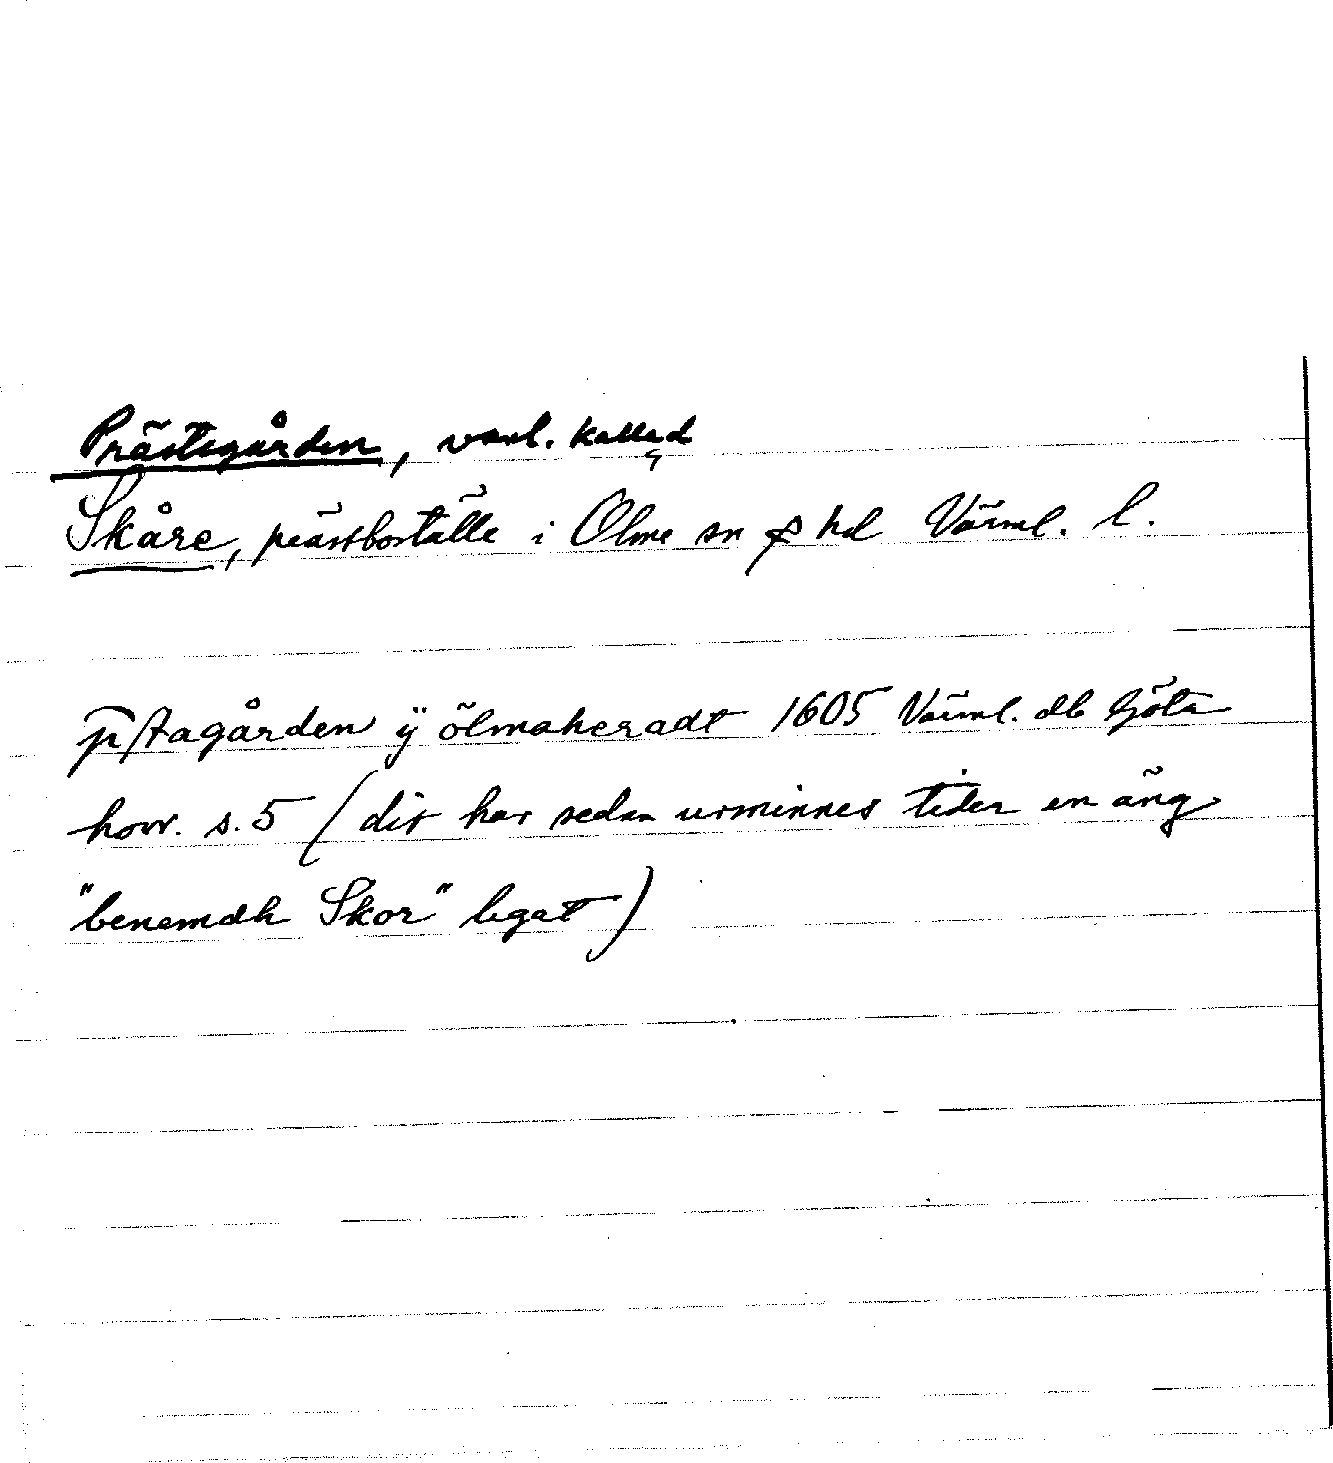 Prästegården, vanl. kallad
Skåre, prästboställe i Ölme sn o hd Värml. l.
p̄stagården ÿ ölmaheradt 1605 Värml. db Göta
hovr. s. 5 (dit har sedan urminnes tider en äng
"benemdh Skor" legat)